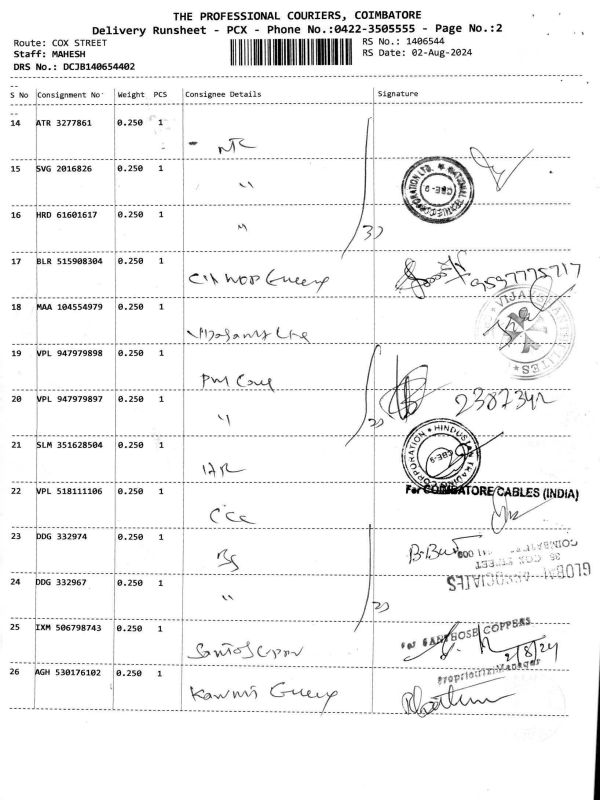 THE PROFESSIONAL COURIERS, COIMBATORE
Delivery Runsheet - PCX - Phone No.:0422-3505555 - Page No.:2
Route: COX STREET
RS No.: 1406544
Staff: MAHESH
RS Date: 02-Aug-2024
DRS No.: DCJB140654402
S No Consignment No Weight PCS Consignee Details Signature
14 ATR 3277861 0.250 1 NTC
15 SVG 2016826 0.250 1 "
NATIONAL CORPORATION LTD. CBE-9
16 HRD 61601617 0.250 1 "
3)
17 BLR 515908304 0.250 1
9597775717
18 MAA 104554979 0.250 1
VIJAY
19 VPL 947979898 0.250 1
20 VPL 947979897 0.250 1 "
2)
2387342
21 SLM 351628504 0.250 1
HINDUSTAN TRADING CORPORATION CBE-9
22 VPL 518111106 0.250 1 CCC
For COIMBATORE CABLES (INDIA)
23 DDG 332974 0.250 1
COX STREET
GLOBAL ASSOCIATES
24 DDG 332967 0.250 1 "
2)
25 IXM 506798743 0.250 1
For SANTHOSE COPPERS
2/8/24
Proprietrix/Manager
26 AGH 530176102 0.250 1